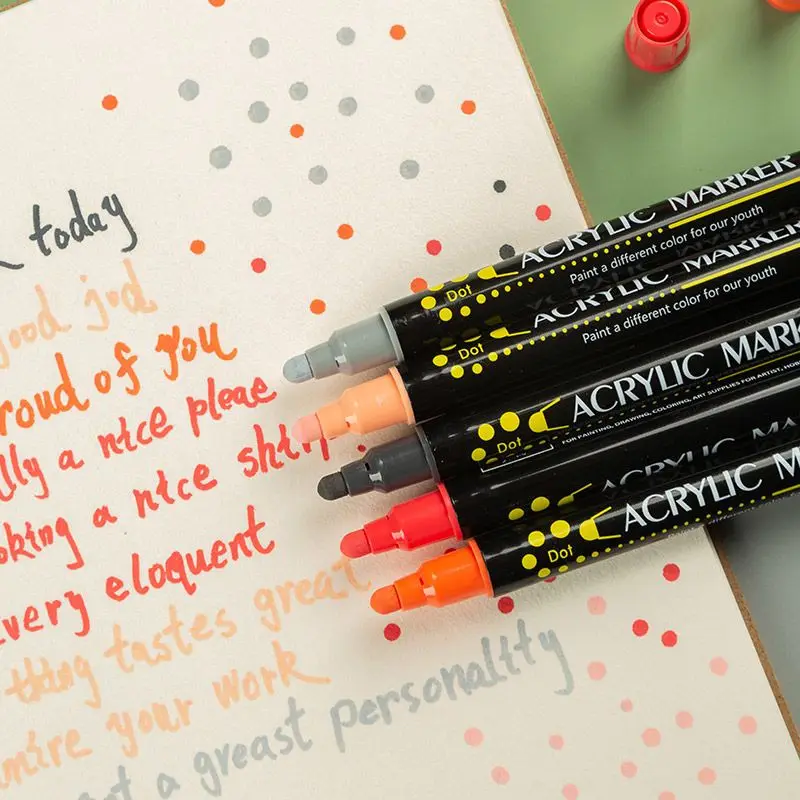 today
good jud
roud of you
lly a nice pleae
oking a nice shirt
very eloquent
thing tastes great
mire your work
t a greast personality
ACRYLIC MARKER
Dot
Paint a different color for our youth
ACRYLIC MARKER
Dot
Paint a different color for our youth
ACRYLIC MARK
Dot
FOR PAINTING, DRAWING, COLORING, ART SUPPLIES FOR ARTIST, HOB
ACRYLIC MA
ACRYLIC M
Dot